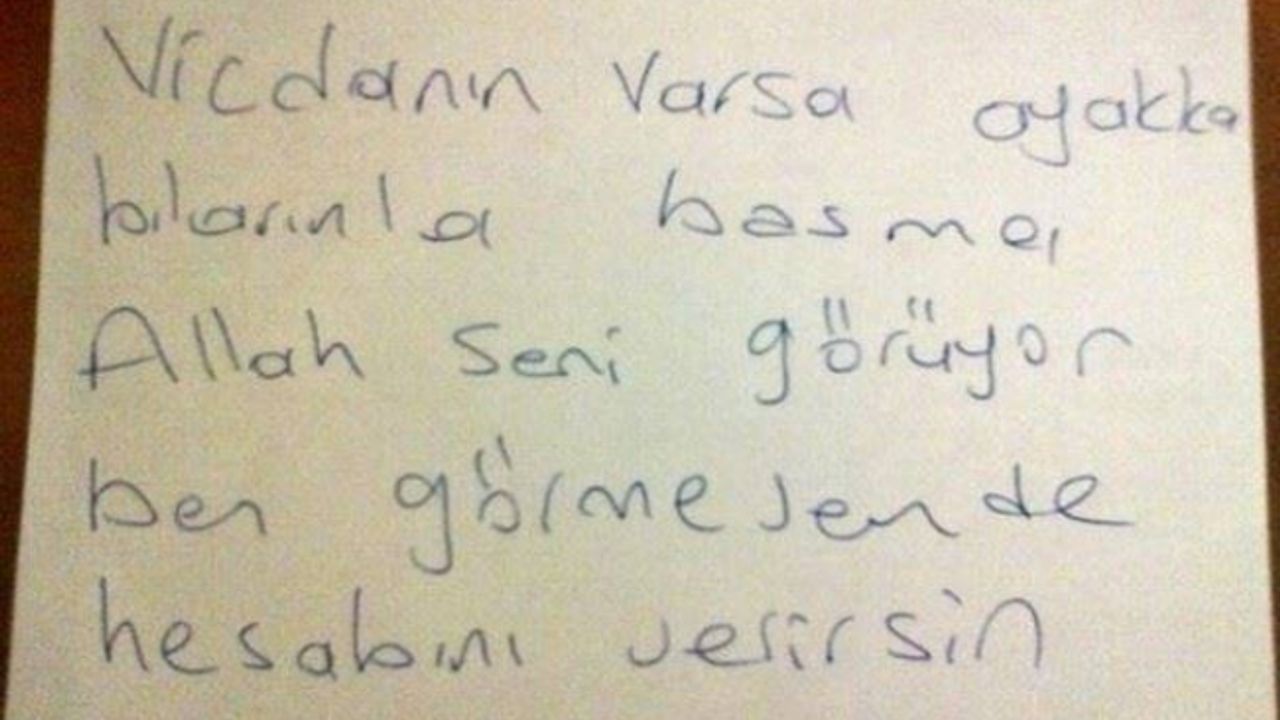 Vicdanın varsa ayakka
bılarınla basma,
Allah seni görüyor
ben görmesende
hesabını verirsin